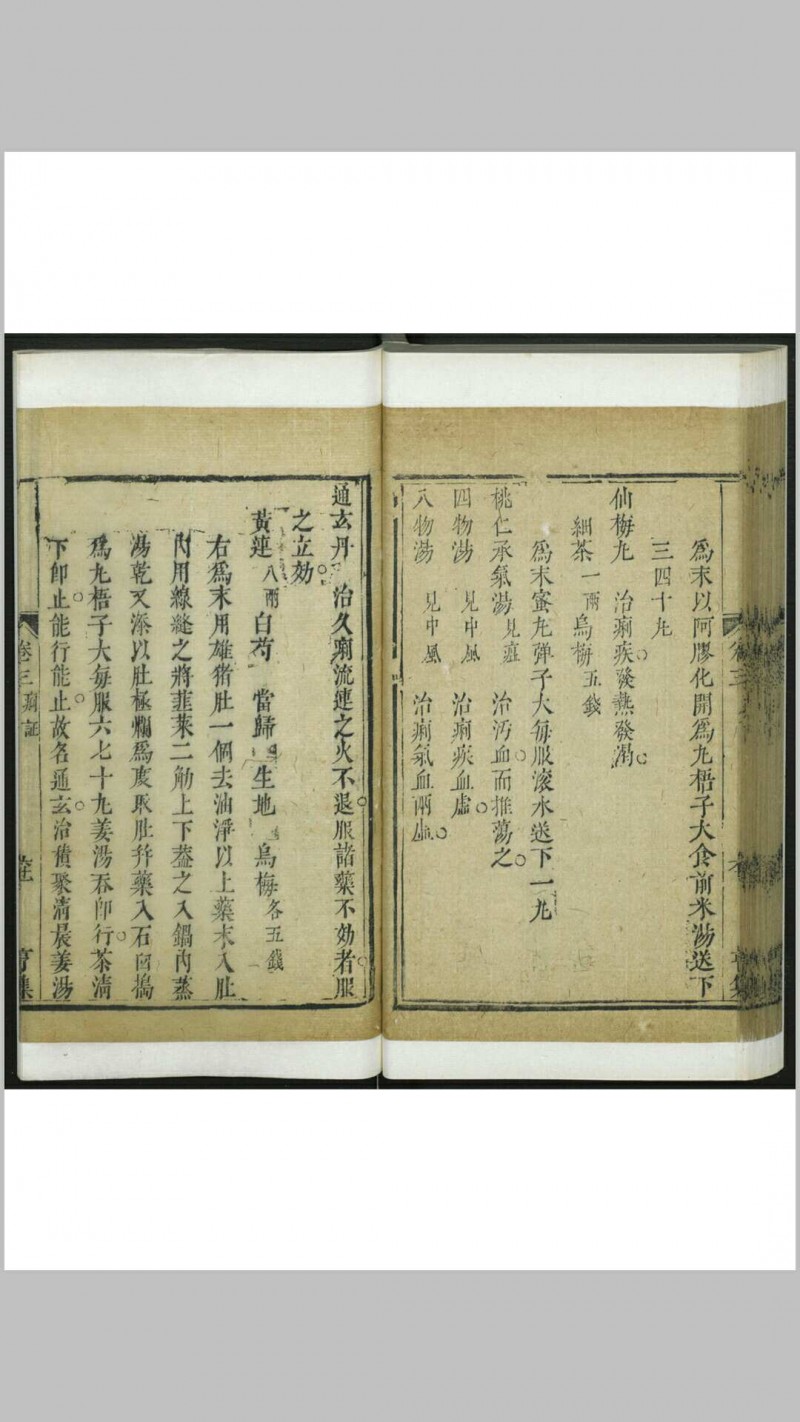 為末以阿膠化開為丸梧子大食前米湯送下
三四十丸
仙梅丸 治痢疾發熱發渴
細茶一兩烏梅五錢
為末蜜丸弹子大每服滚水送下一丸
桃仁承氣湯見瘧 治汚血而推蕩之
四物湯 見中風 治痢疾血虛
八物湯 見中風 治痢氣血兩虛
通玄丹 治久痢流連之火不退服諸藥不効者服
之立効
黃連八兩白芍 當歸 生地 烏梅各五錢
右為末用雄猪肚一個去油淨以上藥末入肚
內用線縫之將韮菜二觔上下蓋之入鍋內蒸
湯乾又添以肚極爛為度取肚并藥入石臼搗
為丸梧子大每服六七十丸姜湯吞即行茶清
下卽止能行能止故名通玄治積聚清晨姜湯
卷三痢証 亨集